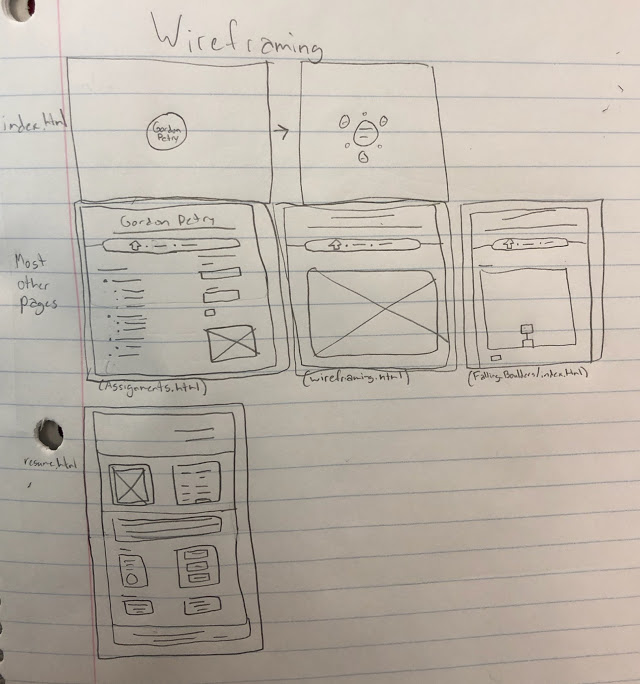 Wireframing
index.html
Gordon
Petry
Most
other
pages
Gordon Petry
(Assignments.html)
(wireframing.html)
(Falling-Boulders/index.html)
resume.html